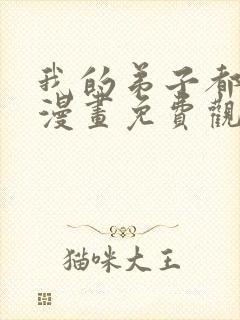 我的弟子都
漫畫免費觀
猫咪大王